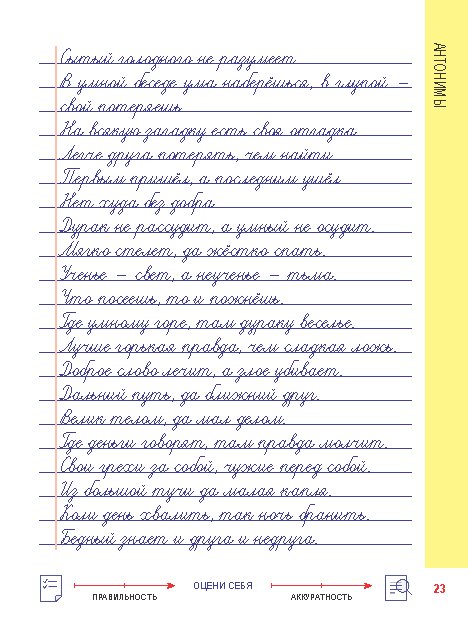 АНТОНИМЫ
Сытый голодного не разумеет
В умной беседе ума наберёшься, в глупой –
свой потеряешь
На всякую загадку есть своя отгадка
Легче друга потерять, чем найти
Первым пришёл, а последним ушёл
Нет худа без добра
Дурак не рассудит, а умный не осудит.
Мягко стелет, да жёстко спать.
Ученье – свет, а неученье – тьма.
Что посеешь, то и пожнёшь.
Где умному горе, там дураку веселье.
Лучше горькая правда, чем сладкая ложь.
Доброе слово лечит, а злое убивает.
Дальний путь, да ближний друг.
Велик телом, да мал делом.
Где деньги говорят, там правда молчит.
Свои грехи за собой, чужие перед собой.
Из большой тучи да малая капля.
Коли день хвалить, так ночь бранить.
Бедный знает и друга и недруга.
ПРАВИЛЬНОСТЬ
ОЦЕНИ СЕБЯ
АККУРАТНОСТЬ
23